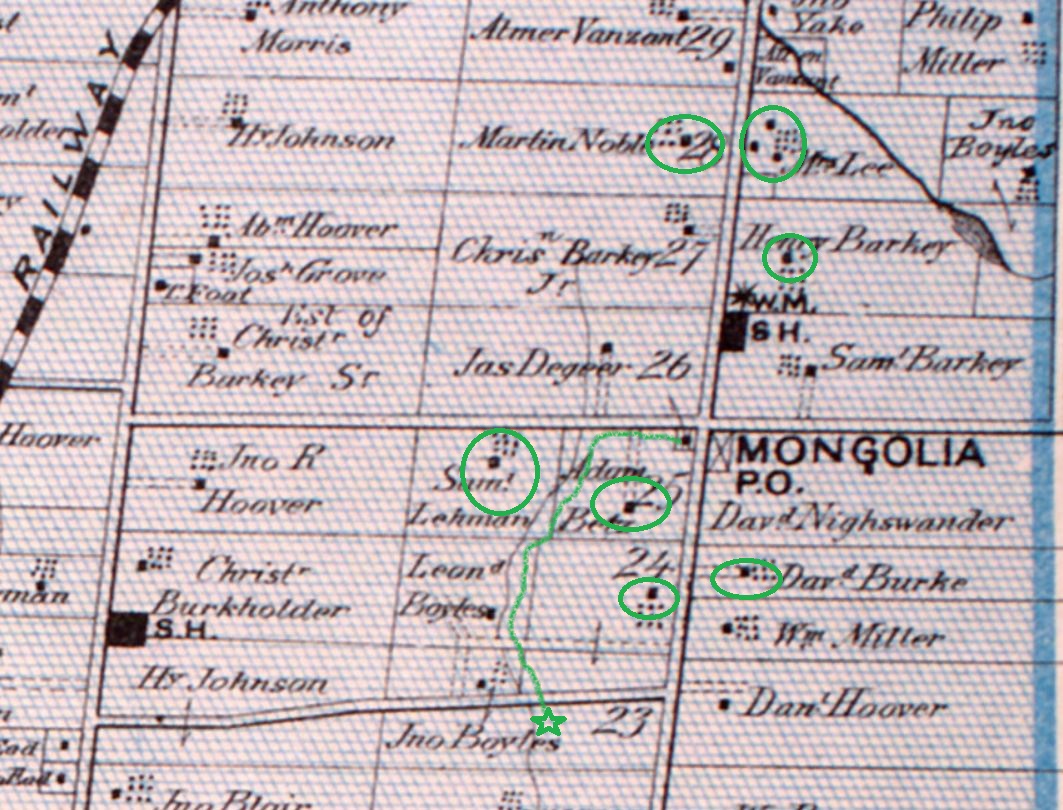 Anthony
Morris
Atmer Vanzant 29
Yake
Philip
Miller
Vanzant
RAILWAY
Hy Johnson
Martin Noble 28
Mrs Lee
Jno
Boyles
Abm Hoover
Josh Grove
Foot
Chrisn Barkey 27
Jr
Henry Barkey
W.M.
S H.
Est of
Christr
Barkey Sr
Jas Degeer 26
Saml Barkey
Hoover
Jno R
Hoover
Saml
Lehman
Adam
Betz
25
MONGOLIA
P.O.
Davd Nighswander
Christr
Burkholder
S.H.
Leond
Boyles
24
Davd Burke
Wm Miller
Hy Johnson
Danl Hoover
Jno Boyles
23
Jno Blair